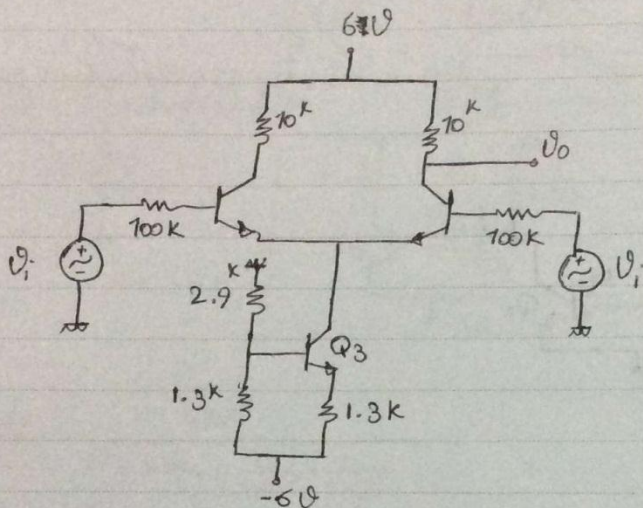 6v
10k
10k
vo
100k
100k
vi
vi
2.9k
Q3
1.3k
1.3k
-6v